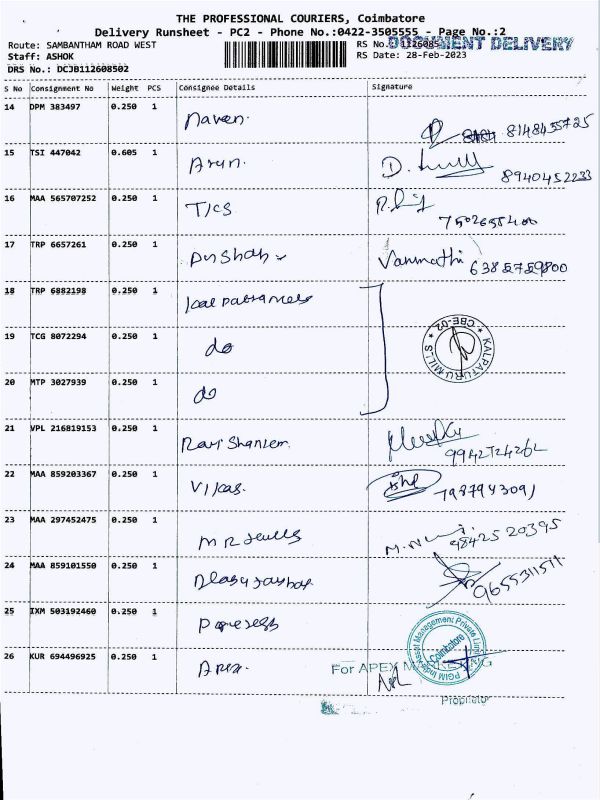 THE PROFESSIONAL COURIERS, Coimbatore
Delivery Runsheet - PC2 - Phone No.:0422-3505555 - Page No.:2
Route: SAMBANTHAM ROAD WEST RS No.
DOCUMENT DELIVERY
Staff: ASHOK RS Date: 28-Feb-2023
DRS No.: DCJB112608502
S No Consignment No Weight PCS Consignee Details Signature
14 DPM 383497 0.250 1 Naven.
8148455725
15 TSI 447042 0.605 1 Arun.
8940452233
16 MAA 565707252 0.250 1 TICS
17 TRP 6657261 0.250 1
Vanmathi
18 TRP 6882198 0.250 1
19 TCG 8072294 0.250 1 do
20 MTP 3027939 0.250 1 do
KALPATURU MILLS * CBE-02 *
21 VPL 216819153 0.250 1 Ravi Shanker.
22 MAA 859203367 0.250 1 Vikas.
7987943091
23 MAA 297452475 0.250 1
98425 20395
24 MAA 859101550 0.250 1
9655311511
25 IXM 503192460 0.250 1
PGIM India Asset Management Private Limited
Coimbatore
26 KUR 694496925 0.250 1 Apex.
For APEX MARKETING
Proprietor